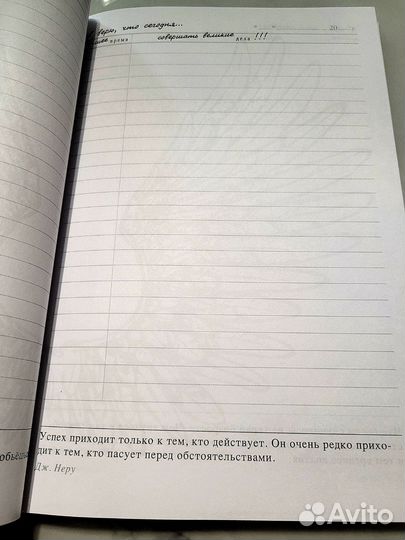 верю, что сегодня...
20 г.
время совершать великие дела !!!
Успех приходит только к тем, кто действует. Он очень редко прихо-
дит к тем, кто пасует перед обстоятельствами.
Дж. Неру
Avito